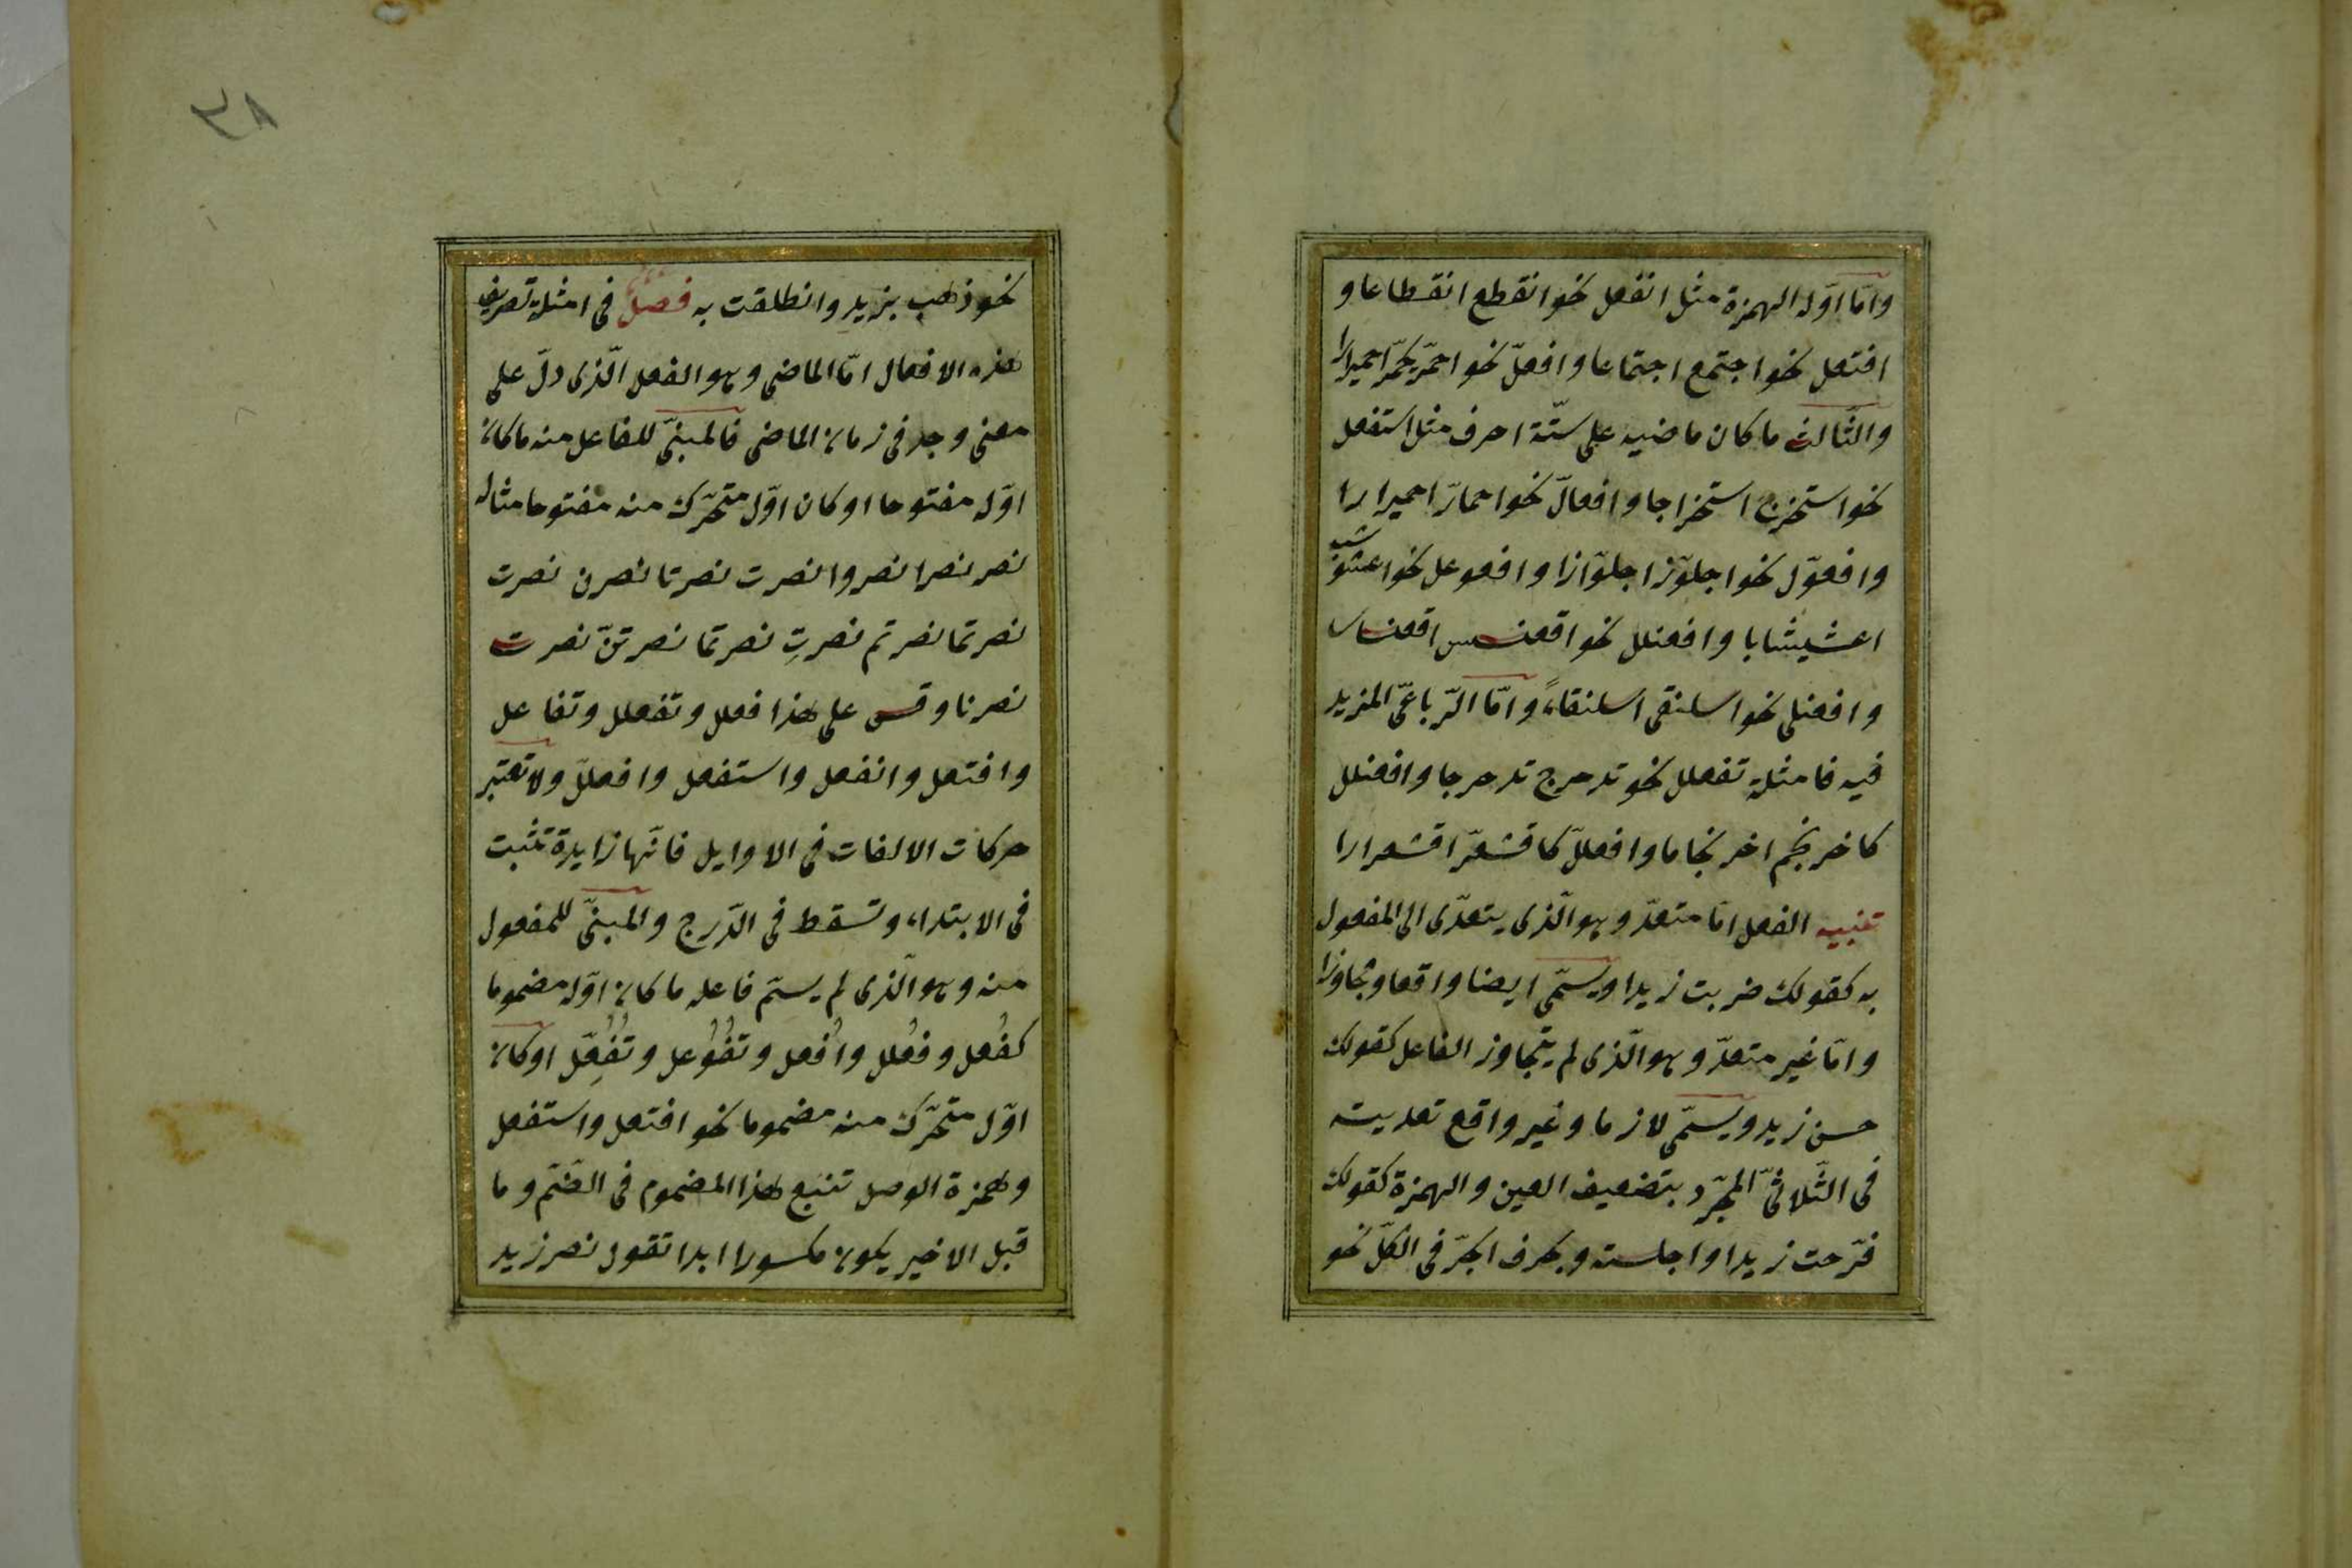 وامّا اوّله الهمزة مثل انفعل نحو انقطع انقطاعا و
افتعل نحو اجتمع اجتماعا وافعلّ نحو احمرّ يحمرّ احمرارا
والثّالث ما كان ماضيه على ستّة احرف مثل استفعل
نحو استخرج استخراجا وافعالّ نحو احمارّ احميرارا
وافعوّل نحو اجلوّز اجلوّازا وافعوعل نحو اعشوشب
اعشيشابا وافعنلل نحو اقعنسس اقعنساسا
وافعنلى نحو اسلنقى اسلنقاءً وامّا الرّباعىّ المزيد
فيه فامثلة تفعلل نحو تدحرج تدحرجا وافعنلل
كاخرنجم اخرنجاما وافعللّ كاقشعرّ اقشعرارا
تنبيه الفعل امّا متعدّ وهو الّذى يتعدّى الى المفعول
به كقولك ضربت زيدا ويسمّى ايضا واقعا ومجاوزا
وامّا غير متعدّ وهو الّذى لم يتجاوز الفاعل كقولك
حسن زيد ويسمّى لازما وغير واقع تعديته
فى الثّلاثىّ المجرّد بتضعيف العين والهمزة كقولك
فرّحت زيدا واجلسته وبحرف الجرّ فى الكلّ نحو
٣٨
نحو ذهب بزيد وانطلقت به فصل فى امثلة تصريف
هذه الافعال امّا الماضى وهو الفعل الّذى دلّ على
معنى وجد فى زمان الماضى فالمبنىّ للفاعل منه ما كان
اوّله مفتوحا او كان اوّل متحرّك منه مفتوحا مثاله
نصر نصرا نصروا نصرت نصرتا نصرن نصرت
نصرتما نصرتم نصرتِ نصرتما نصرتنّ نصرت
نصرنا وقس على هذا فعلل وتفعلل وتفاعل
وافتعل وانفعل واستفعل وافعللّ ولا تعتبر
حركات الالفات فى الاوايل فانّها زايدة تثبت
فى الابتداء وتسقط فى الدّرج والمبنىّ للمفعول
منه وهو الّذى لم يسمّ فاعله ما كان اوّله مضموما
كفُعل وفُعلل واُفعل وتُفُوعل وتُفُعِّل او كان
اوّل متحرّك منه مضموما نحو افتعل واستفعل
وهمزة الوصل تتبع هذا المضموم فى الضّم وما
قبل الاخير يكون مكسورا ابدا تقول نصر زيد